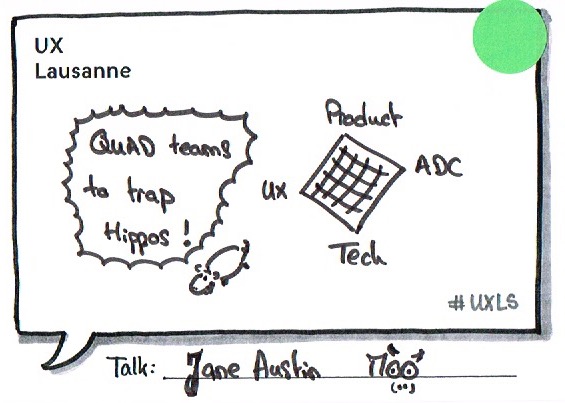 UX
Lausanne
QUAD teams
to trap
Hippos !
Product
ADC
UX
Tech
#UXLS
Talk: Jane Austin Moo